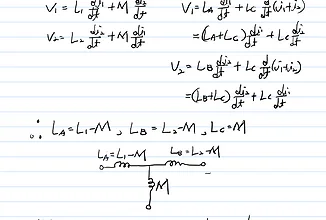 V₁ = L₁ di₁/dt + M di₂/dt
V₂ = L₂ di₂/dt + M di₁/dt
V₁ = L_A di₁/dt + L_C d/dt (i₁+i₂)
= (L_A+L_C) di₁/dt + L_C di₂/dt
V₂ = L_B di₂/dt + L_C d/dt (i₁+i₂)
= (L_B+L_C) di₂/dt + L_C di₁/dt
∴ L_A = L₁-M , L_B = L₂-M , L_C = M
L_A = L₁-M L_B = L₂-M
M